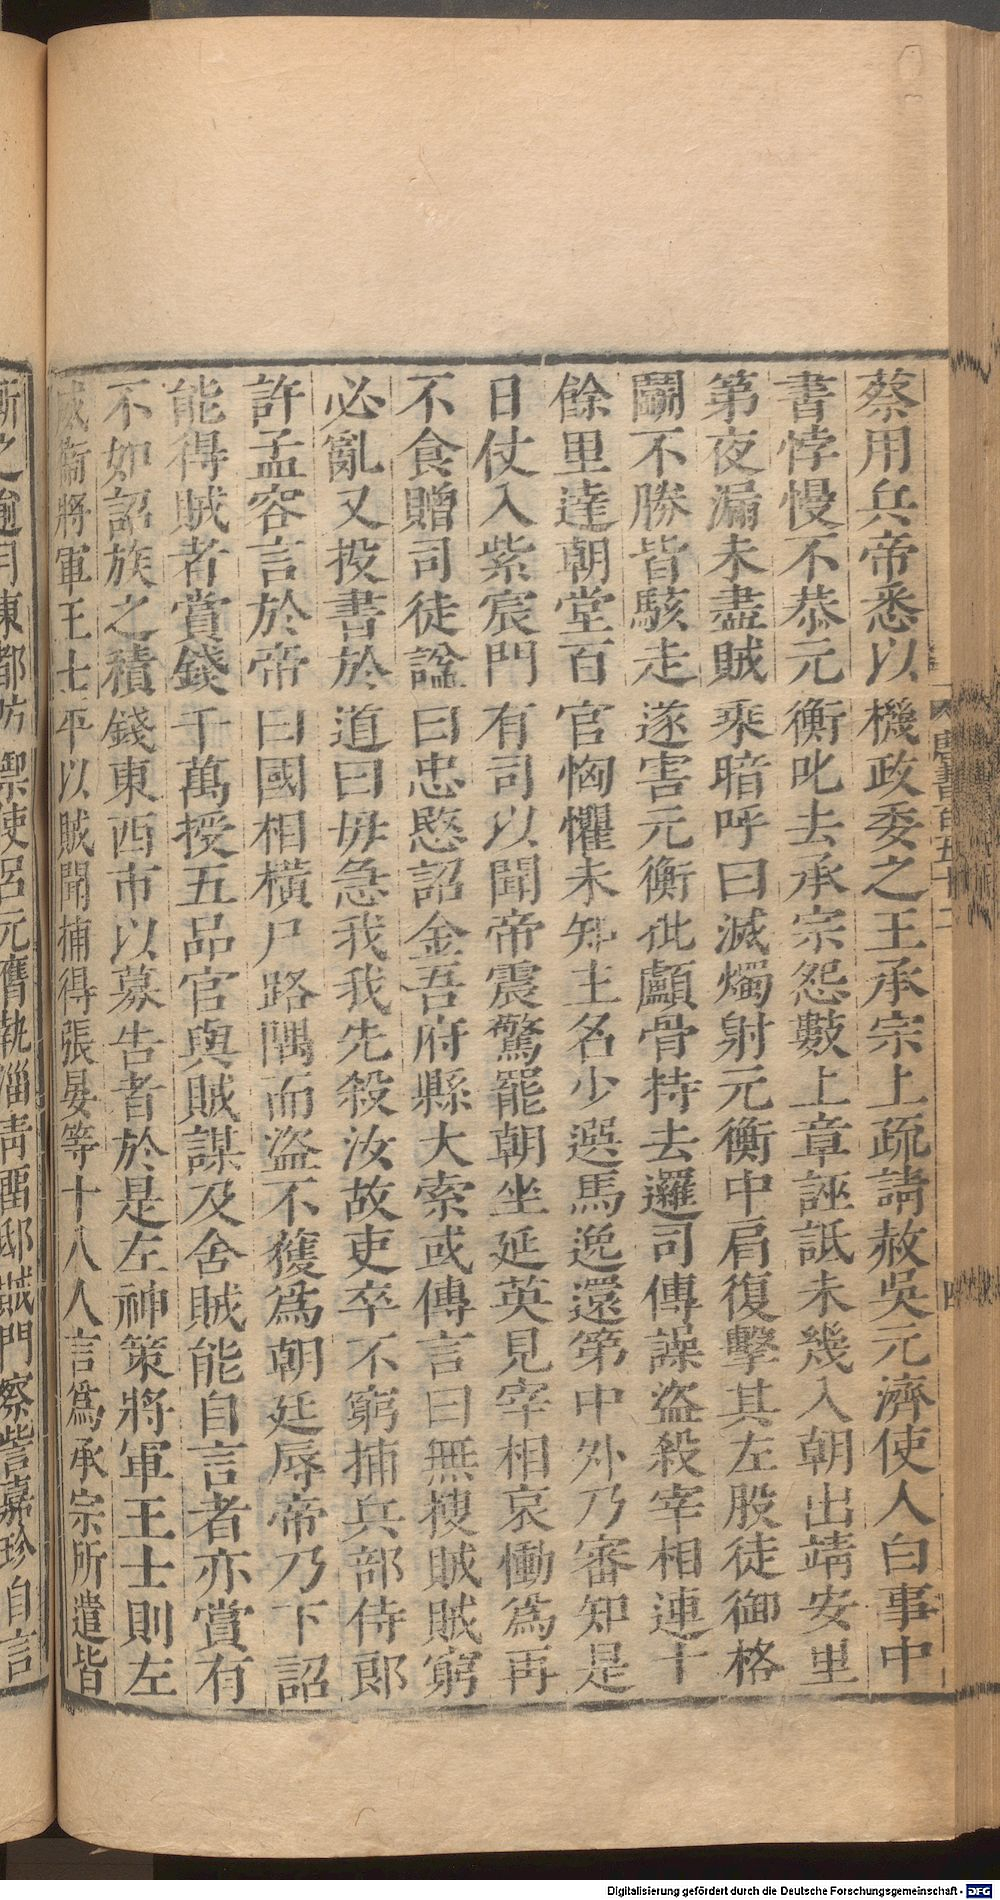 蔡用兵帝悉以機政委之王承宗上疏請赦吳元濟使人白事中
書悖慢不恭元衡叱去承宗怨數上章誣詆未幾入朝出靖安里
第夜漏未盡賊乘暗呼曰滅燭射元衡中肩復擊其左股徒御格
鬬不勝皆駭走遂害元衡批顱骨持去邏司傳譟盜殺宰相連十
餘里達朝堂百官恟懼未知主名少選馬逸還第中外乃審知是
日仗入紫宸門有司以聞帝震驚罷朝坐延英見宰相哀慟爲再
不食贈司徒諡曰忠愍詔金吾府縣大索或傳言曰無搜賊賊窮
必亂又投書於道曰毋急我我先殺汝故吏卒不窮捕兵部侍郎
許孟容言於帝曰國相橫尸路隅而盜不獲爲朝廷辱帝乃下詔
能得賊者賞錢千萬授五品官與賊謀及舍賊能自言者亦賞有
不如詔族之積錢東西市以募告者於是左神策將軍王士則左
威衞將軍王士平以賊聞捕得張晏等十八人言爲承宗所遣皆
斬之逾月東都防禦使呂元膺執淄青留邸賊門察訾嘉珍自言
唐書百五十二
四
Digitalisierung gefördert durch die Deutsche Forschungsgemeinschaft - DFG